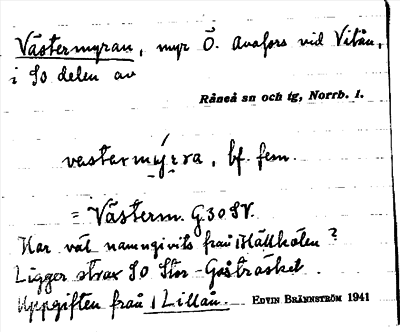 Västermyran, myr Ö. Avafors vid Vitån,
i SO delen av
Råneå sn och tg, Norrb. l.
vestermy̨rra, bf. fem.
= Västerm. G. 30 SV.
Har väl namngivits från Hällholen?
Ligger strax SO Stor-Gosträsket.
Uppgiften från i Lillån. EDVIN BRÄNNSTRÖM 1941